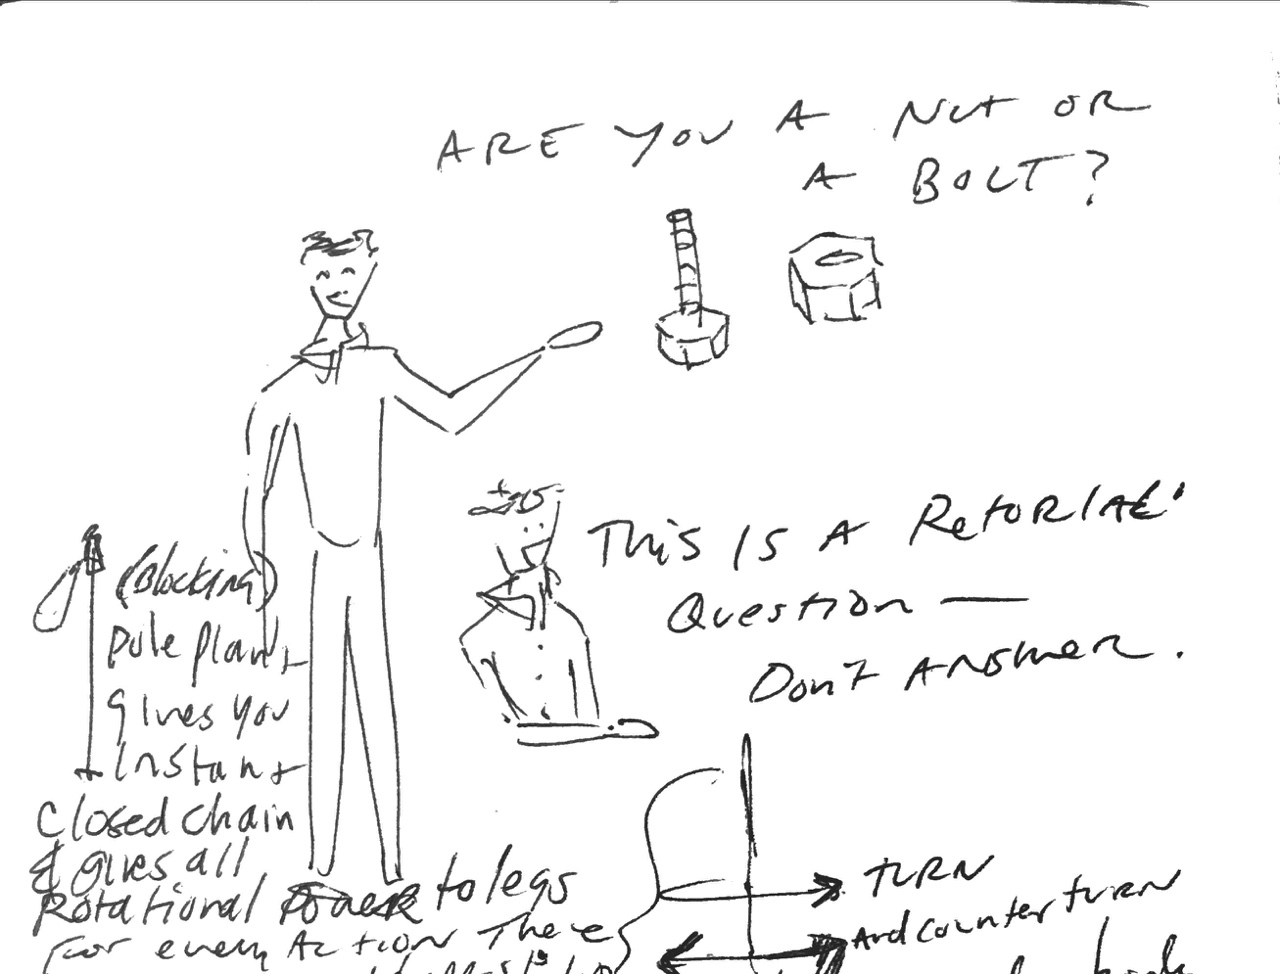 ARE YOU A NUT OR
A BOLT?
This IS A RetORIAL
Question —
Don't ANSWER.
(Blocking)
pole plant
gives you
instant
closed chain
& gives all
Rotational Power to legs
For every ACTION There
TURN
And counter turn
body